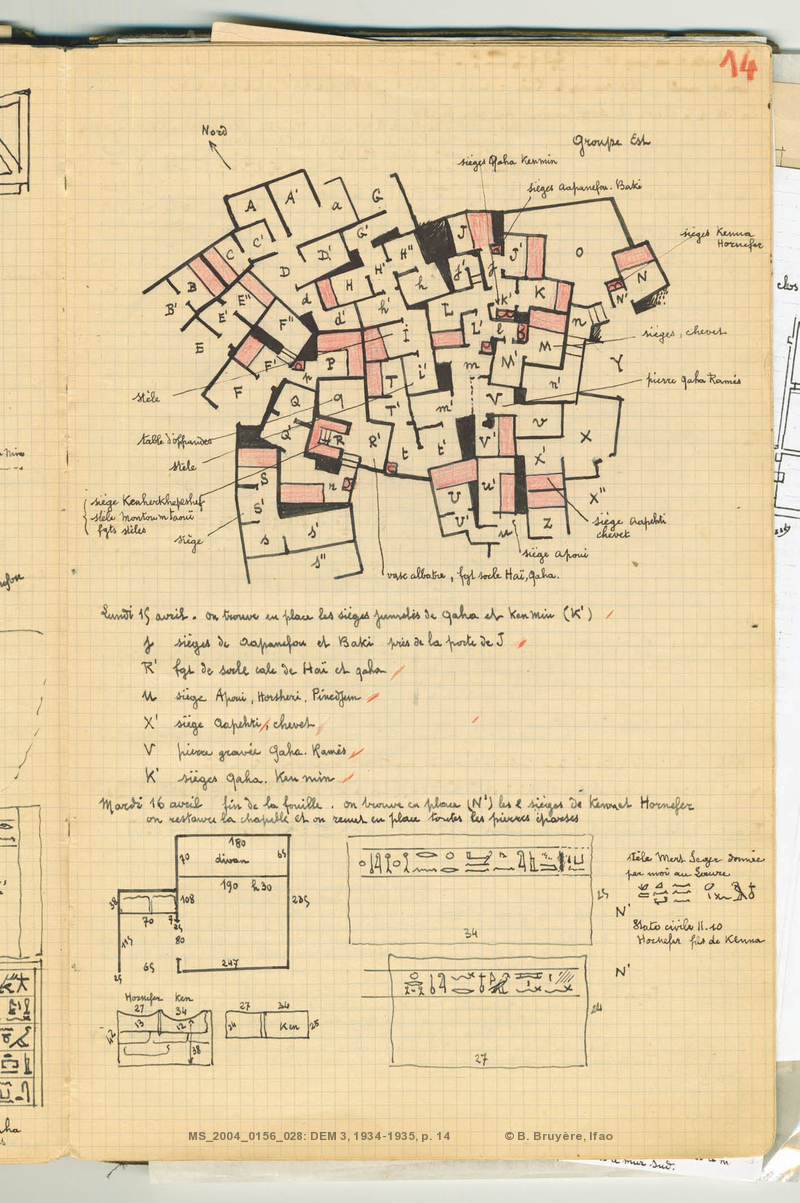 14
Nord
Groupe Est
sièges Qaha Kenmin
sièges Aapanefou. Baki
sièges Kenna
Hornefer
A
A'
a
G
B
B'
C
C'
D
D'
G'
H
H'
H"
h
h'
d
d'
E
E'
E"
F
F'
F"
J
J'
j
j'
O
N
N'
n
n'
K
K'
L
L'
l
M
M'
m
m'
Y
I
i'
P
p
Q
Q'
q
R
R'
r
T
T'
t
t'
V
V'
v
X
X'
X"
S
S'
s
s'
s"
U
U'
u
u'
Z
sièges, chevet
pierre Qaha Ramès
stèle
table d'offrandes
stèle
siège Kenherkhepeshef
stèle Montoumtaoui
fgts stèles
siège
siège Aapehti
chevet
siège Apoui
vase albatre, fgt socle Haï, Qaha.
Lundi 15 avril. on trouve en place les sièges jumelés de Qaha et Kenmin (K')
j sièges de Aapanefou et Baki près de la porte de J
R' fgt de socle cale de Haï et Qaha
u siège Apoui, Horsheri, Pinedjem
X' siège Aapehti, chevet
V pierre gravée Qaha. Ramès
K' sièges Qaha. Kenmin
Mardi 16 avril fin de la fouille. on trouve en place (N') les 2 sièges de Kenna et Hornefer
on restaure la chapelle et on remet en place toutes les pierres éparses
180
70
divan
65
190 h 30
38
108
285
70
80
65
247
25
34
N'
stèle Mert Seger donnée
par moi au Louvre
Stato civile II.10
Hornefer fils de Kenna
N'
24
27
Hornefer Ken
27 34
42
38
27 34
Ken
25
MS_2004_0156_028: DEM 3, 1934-1935, p. 14 © B. Bruyère, Ifao